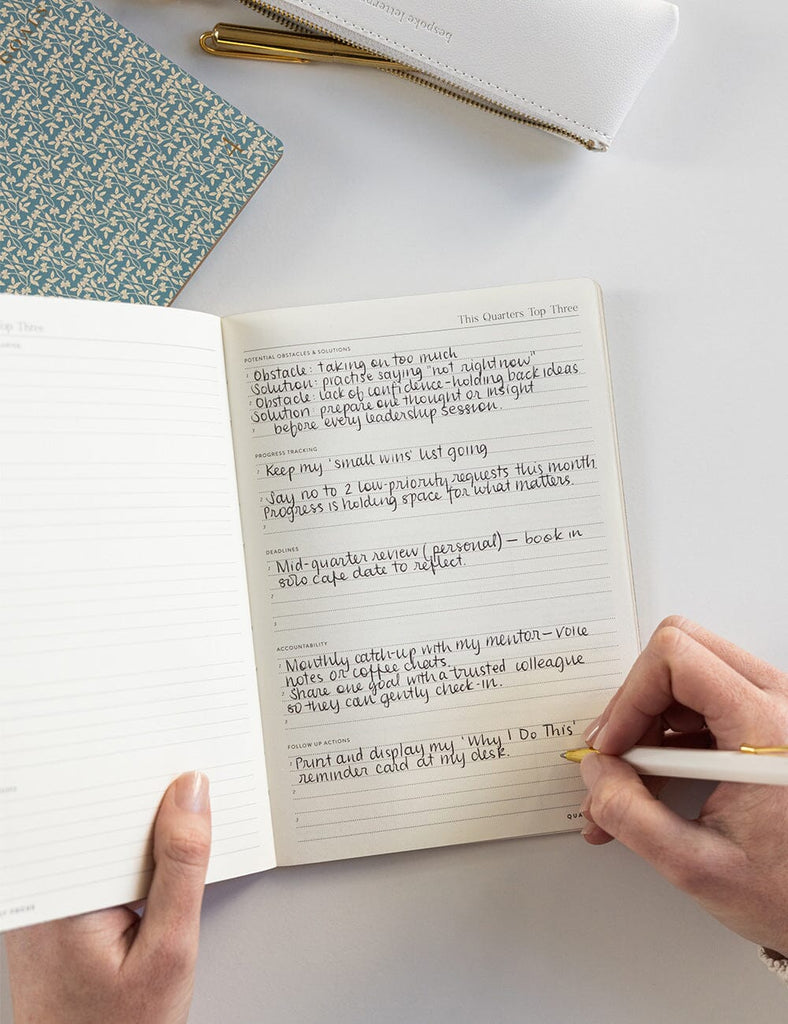 bespoke letterp
Top Three
This Quarters Top Three
POTENTIAL OBSTACLES & SOLUTIONS
1 Obstacle: taking on too much
Solution: practise saying "not right now"
2 Obstacle: lack of confidence - holding back ideas
Solution: prepare one thought or insight
before every leadership session.
3
PROGRESS TRACKING
1 Keep my 'small wins' list going
2 Say no to 2 low-priority requests this month
Progress is holding space for what matters.
3
DEADLINES
1 Mid-quarter review (personal) – book in
solo cafe date to reflect.
2
3
ACCOUNTABILITY
1 Monthly catch-up with my mentor – voice
notes or coffee chats.
2 Share one goal with a trusted colleague
so they can gently check-in.
3
FOLLOW UP ACTIONS
1 Print and display my 'Why I Do This'
reminder card at my desk.
2
3
QUA